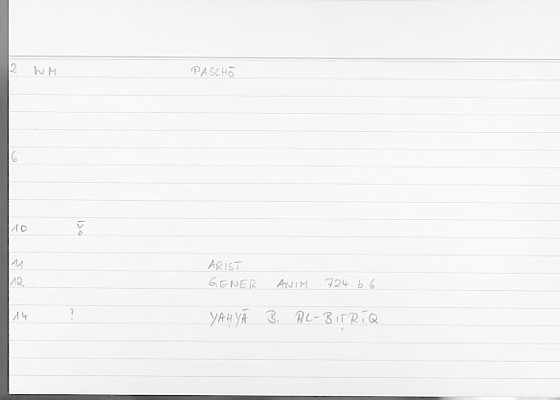 2 WM PASCHŌ
6
10 v̄ o
11 ARIST
12 GENER ANIM 724 b 6
14 ? YAḤYĀ B. AL-BIṬRĪQ